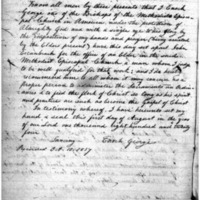 Know all men by these presents that I Enoch
George one of the Bishops of the Methodist Epis-
copal Church in America, under the protection of
Almighty God and with a single eye to his glory by
the imposition of my hands and prayer, (being assisted
by the Elders present,) have this day set apart John
for the office of an Elder in the said
Methodist Episcopal Church, a man whom I judge
to be well qualified for that work; and I do hereby
recommend him to all whom it may concern as a
proper person to administer the Sacraments and Ordi-
nances & to feed the flock of Christ so long as his spirit
and practice are such as become the Gospel of Christ
In testimony whereof I have hereunto set my
hand & seal this first day of August in the year
of our Lord one thousand eight hundred and twenty
four
Enoch George
Recorded